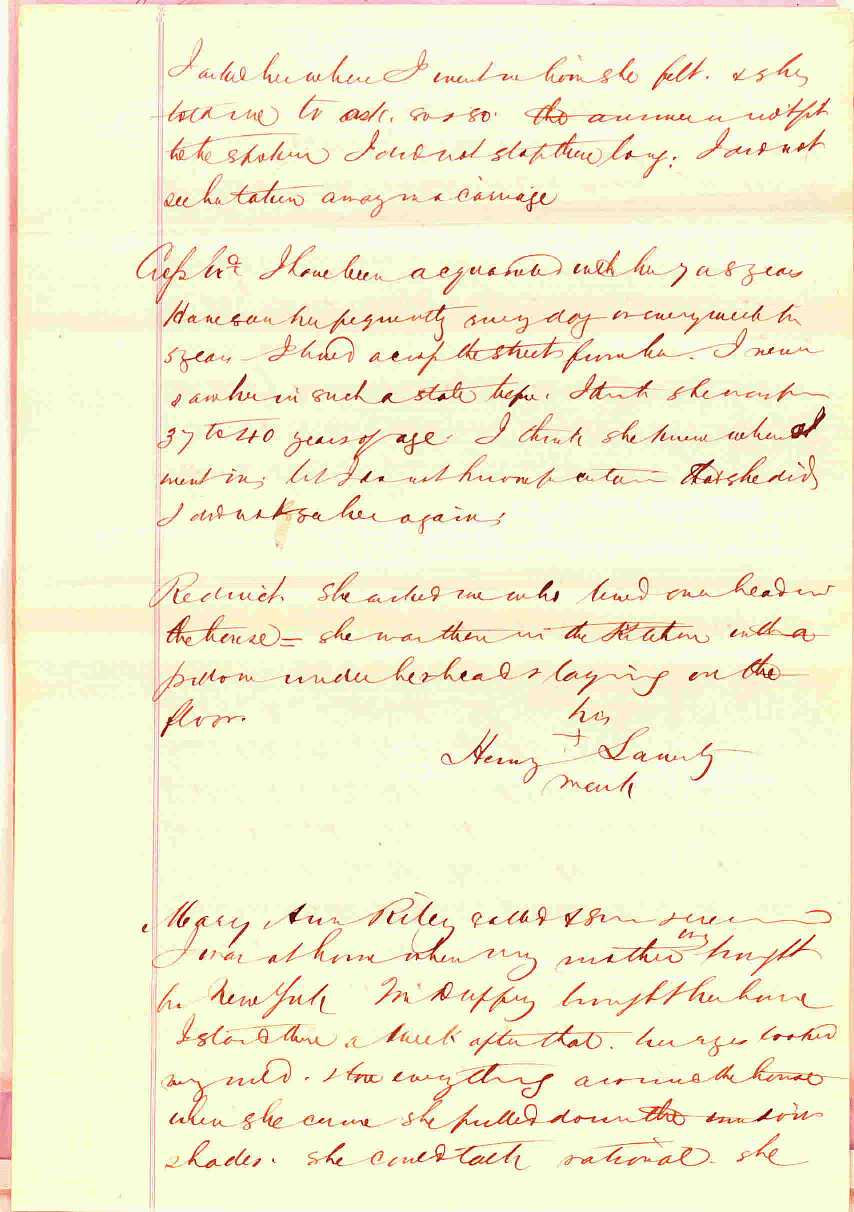 I asked her when I went in how she felt. & she
told me to ask. so & so. the answer is not fit
to be spoken I did not stop there long. I did not
see her taken away in a carriage
I have been acquainted with her 7 or 8 years
Have seen her frequently every day or every week for
5 years I lived across the street from her. I never
saw her in such a state before. I think she was from
37 to 40 years of age. I think she knew when I
went in; but I do not know for certain that she did
I did not see her again;
Redirect She asked me who lived over head in
the house = she was then in the Kitchen with a
pillow under her head & laying on the
floor.
his
Henry +
mark
Mary Ann Riley called & sworn
I was at home when my mother was brought
fr. New York Mr Duffey brought her home
I staid there a week after that. her eyes looked
very wild. everything around the house
when she came she pulled down the window
shades. she could talk rational. she